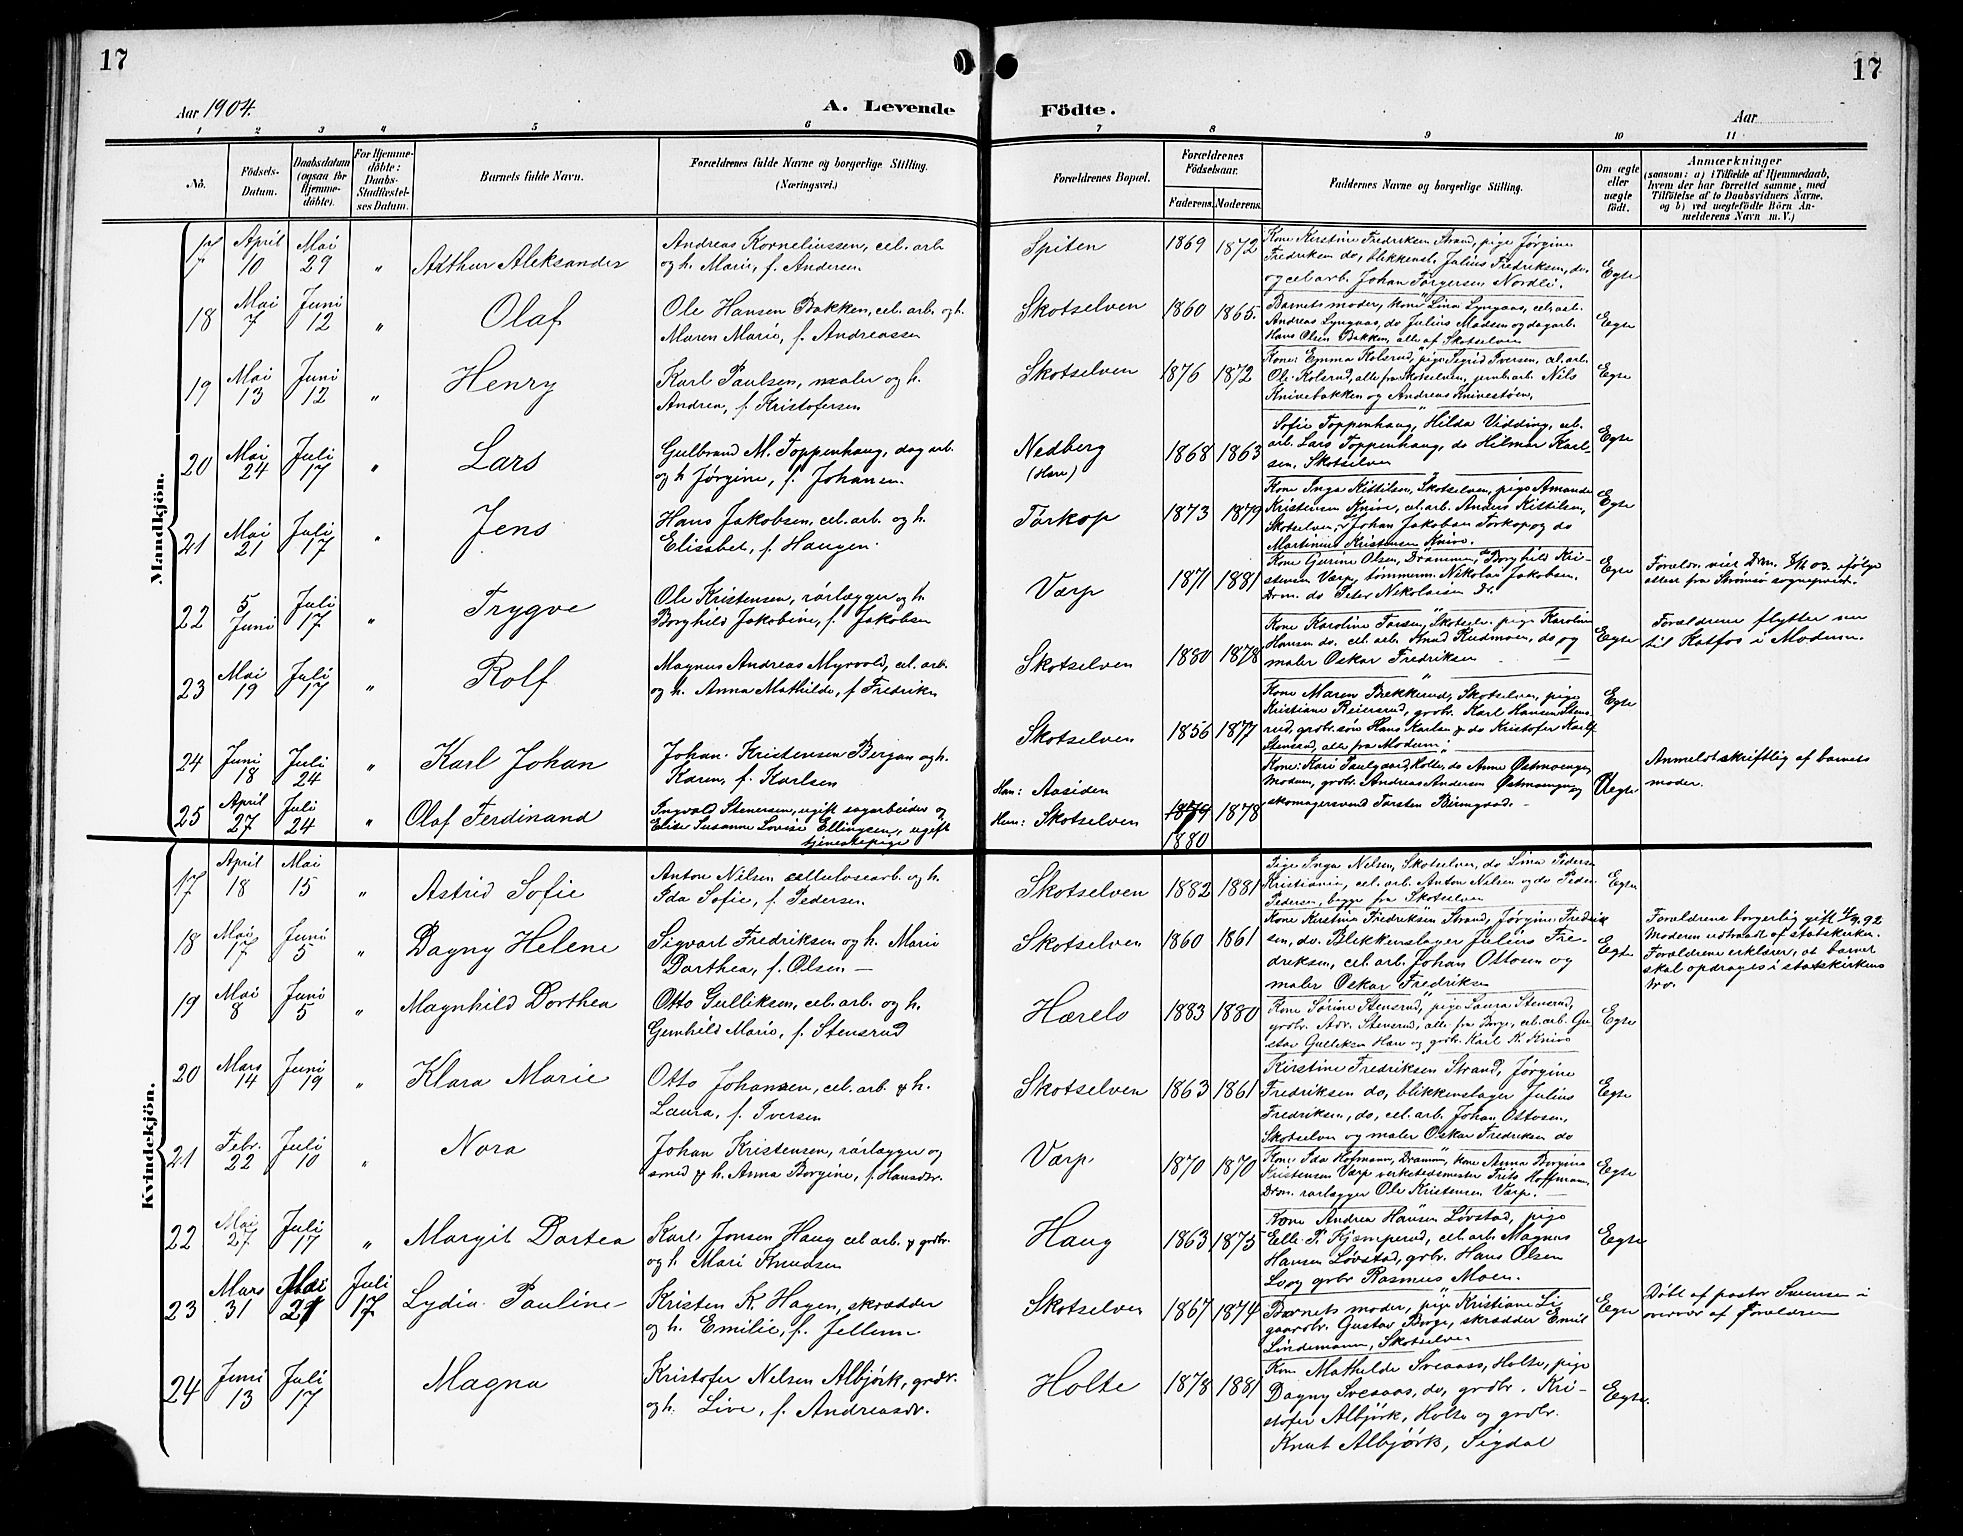 17
17
Aar 1904.
A. Levende
Födte.
Aar
1 2 3 4 5 6 7 8 9 10 11
No.
Födsels-Datum.
Daabsdatum (ogsaa for Hjemmedöbte).
For Hjemmedöbte: Daabs-Stadfæstelses Datum.
Barnets fulde Navn.
Forældrenes fulde Navne og borgerlige Stilling.
(Næringsvei.)
Forældrenes Bopæl.
Forældrenes Födselsaar.
Faderens. Moderens.
Faddernes Navne og borgerlige Stilling.
Om ægte eller uægte födt.
Anmærkninger
(saasom: a) i Tilfælde af Hjemmedaab, hvem der har forrettet samme, med Tilföielse af to Daabsvidners Navne, og b) ved uægtefödte Börn Anmelderens Navn m. V.)
Mandkjön.
17 April 10 Mai 29 „ Arthur Aleksander
Andreas Korneliussen, cel. arb.
og h. Marie, f. Andersen
Spiten 1869 1872
Kone Kirstine Fredriksen Strand, pige Jørgine
Fredriksen do, blikkensl. Julius Fredriksen, do.
og cel. arb. Johan Torgersen Nordli.
Egte
18 Mai 7 Juni 12 „ Olaf
Ole Hansen Bakken, cel. arb. og h.
Maren Marie, f. Andreassen
Skotselven 1860 1865.
Barnets moder, kone Lina Lyngaas, cel. arb.
Andreas Lyngaas, do Julius Madsen og dagarb.
Hans Olsen Bakken, alle af Skotselven
Egte
19 Mai 13 Juni 12 „ Henry
Karl Paulsen, maler og h.
Andrea, f. Kristofersen
Skotselven 1876 1872
Kone: Emma Kolsrud, pige Sigrid Iversen, cel. arb.
Ole Kolsrud, alle fra Skotselven, jernb. arb. Nils
Knivebakken og Andreas Knivestøen,
Egte
20 Mai 24 Juli 17 „ Lars
Gulbrand M. Toppenhaug, dagarb.
og h Jørgine, f. Johansen.
Nedberg
(Hære)
1868 1863
Sofie Toppenhaug, Hilda Vidding, cel.
arb. Lars Toppenhaug, do Hilmar Karl-
sen, Skotselven
Egte
21 Mai 21 Juli 17 „ Jens
Hans Jakobsen, cel. arb. og h.
Elisabet, f. Haugen.
Torkop 1873 1879
Kone Inga Kittilsen, Skotselven, pige Amanda
Kristensen Knive, cel. arb. Anders Kittilsen,
Skotselven, Johan Jakobsen Torkop, og do
Martinius Kristensen Knive.
Egte
22 5 Juni Juli 17 „ Trygve
Ole Kristensen, rørlægger og h.
Borghild Jakobine, f. Jakobsen
Værp 1871 1881
Kone Gurine Olsen, Drammen, Borghild Kri-
stensen Værp, tømmerm. Nikolai Jakobsen,
Drm. do Peter Nikolaisen Dr.
Egte
Foreldr. viet Drm. 03. ifølge
attest fra Strømsø sogneprest.
23 Mai 19 Juli 17 „ Rolf
Magnus Andreas Myrvold, cel. arb.
og h. Anna Mathilde, f. Fredriks
Skotselven 1880 1878
Kone Karoline Torsen, Skotselv. pige Karoline
Hansen do. cel. arb. Knud Rudmoen, do og
maler Oskar Fredriksen
Egte
Forældrene flytter nu
til Katfos i Modum.
24 Juni 18 Juli 24 „ Karl Johan
Johan Kristensen Bergan og h.
Karen, f. Karlsen
Skotselven 1856 1877
Kone Maren Brekkerud, Skotselven, pige
Kristiane Reiersrud, grdbr. Karl Hansen Stens-
rud, grdbr. søn Hans Karlsen & do Kristofer Karls
Stensrud, alle fra Modum.
Egte
25 April 27 Juli 24 „ Olaf Ferdinand
Ingvald Stenersen, ugift sagarbeider og
Elise Susanne Lovise Ellingsen, ugift
tjenestepige
Han: Aasiden
Hun: Skotselven
1879 1878
1880
Kone: Kari Paulgaard, Holte, do Anne Østmoengen
Modum, grdbr. Andreas Andersen Østmoengen og
skomagersvend Torsten
Uegte
Anmeldt skriftlig af barnets
moder.
Kvindekjön.
17 April 18 Mai 15 „ Astrid Sofie
Anton Nilsen cellulosearb. og h.
Ida Sofie, f. Pedersen
Skotselven 1882 1881
Pige Inga Nilsen, Skotselven, do Lina Pedersen
Kristiania, cel. arb. Anton Nilsen og do Peder
Pedersen, begge fra Skotselven
Egte
18 Mai 17 Juni 5 „ Dagny Helene
Sigvart Fredriksen og h. Marie
Dorthea, f. Olsen —
Skotselven 1860 1861
Kone Kirstine Fredriksen Strand, Jørgine Fredrik
sen, do. Blikkenslager Julius Fre-
driksen, cel. arb. Johan Ottosen og
maler Oskar Fredriksen
Egte
Forældrene borgerlig gift 92
Moderen udtraadt af statskirken.
Forældrene erklærer, at barnet
skal opdrages i statskirkens
tro.
19 Mai 8 Juni 5 „ Magnhild Dorthea
Otto Gulliksen, cel. arb. og h.
Gunhild Marie, f. Stensrud
Hærelo 1883 1880
Kone Sørine Stensrud, pige Laura Stensrud,
grdbr. Adr. Stensrud, alle fra Borge, cel. arb. Gu-
stav Gulliksen Hære og grdbr. Karl K. Knive
Egte
20 Mars 14 Juni 19 „ Klara Marie
Otto Johansen, cel. arb. & h.
Laura, f. Iversen
Skotselven 1863 1861
Kirstine Fredriksen Strand, Jørgine
Fredriksen do, blikkenslager Julius
Fredriksen, do, cel. arb. Johan Ottosen,
Skotselven og maler Oskar Fredriksen do
Egte
21 Febr. 22 Juli 10 „ Nora
Johan Kristensen, rørlægger og
smed & h. Anna Borgine, f. Hansdtr.
Værp. 1870 1870
Kone Ida Hofmann, Drammen, kone Anna Borgine
Kristensen Værp verkstedsmester Frits Hoffmann,
Drm. rørlægger Ole Kristensen Værp.
Egte
22 Mai 27 Juli 17 „ Margit Dortea
Karl Jonsen Haug cel. arb. & grdbr.
og h. Mari Knudsen
Haug 1863 1875
Kone Andrea Hansen Løvstad, pige
Elli P. Kjemperud, cel. arb. Magnus
Hansen Løvstad, grbr. Hans Olsen
Lo, og grbr Rasmus Moen.
Egte
23 Mars 31 Mai 21 Juli 17 Lydia Pauline
Kristen K. Hagen, skrædder
og h. Emilie, f. Jellum
Skotselven 1867 1874
Barnets moder, pige Kristiane Li
gaardbr. Gustav Borge, skrædder Emil
Lindemann, Skotselven
Egte
Døbt af pastor Svensen i
overvær af Forældrene
24 Juni 13 Juli 17 Magna
Kristofer Nelsen Albjørk, grdbr.
og h. Live, f. Andreasdr.
Holte 1878 1881
Kone Mathilde Sveaass, Holte, pige
Dagny Sveaas, do, grdbr. Kri-
stofer Albjørk, Holte og grdbr.
Knut Albjørk, Sigdal
Egte.